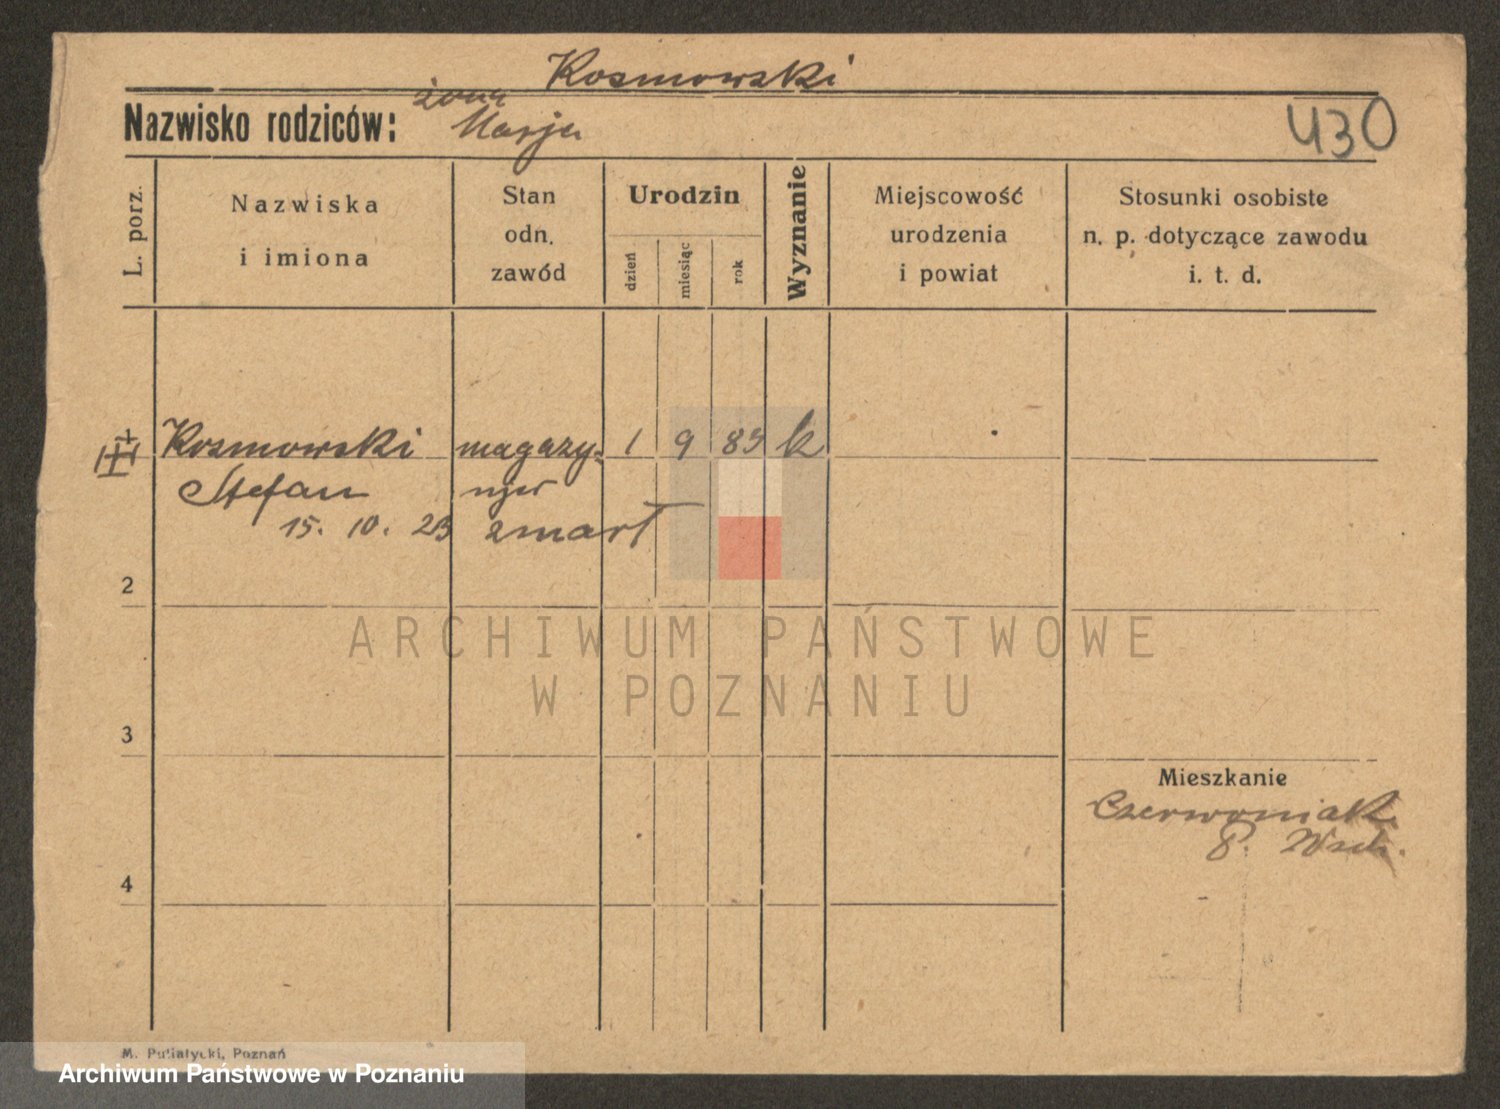 Kosmowski
Nazwisko rodziców: żona
Marja
430
L. porz.
Nazwiska
i imiona
Stan
odn.
zawód
Urodzin
dzień
miesiąc
rok
Wyznanie
Miejscowość
urodzenia
i powiat
Stosunki osobiste
n. p. dotyczące zawodu
i. t. d.
Kosmowski magazy- 1 9 83 k
Stefan njer
15. 10. 23 zmarł
2
ARCHIWUM PAŃSTWOWE
W POZNANIU
3
Mieszkanie
Czerwoniak
P. Wsch.
4
M. Putiatycki, Poznań
Archiwum Państwowe w Poznaniu